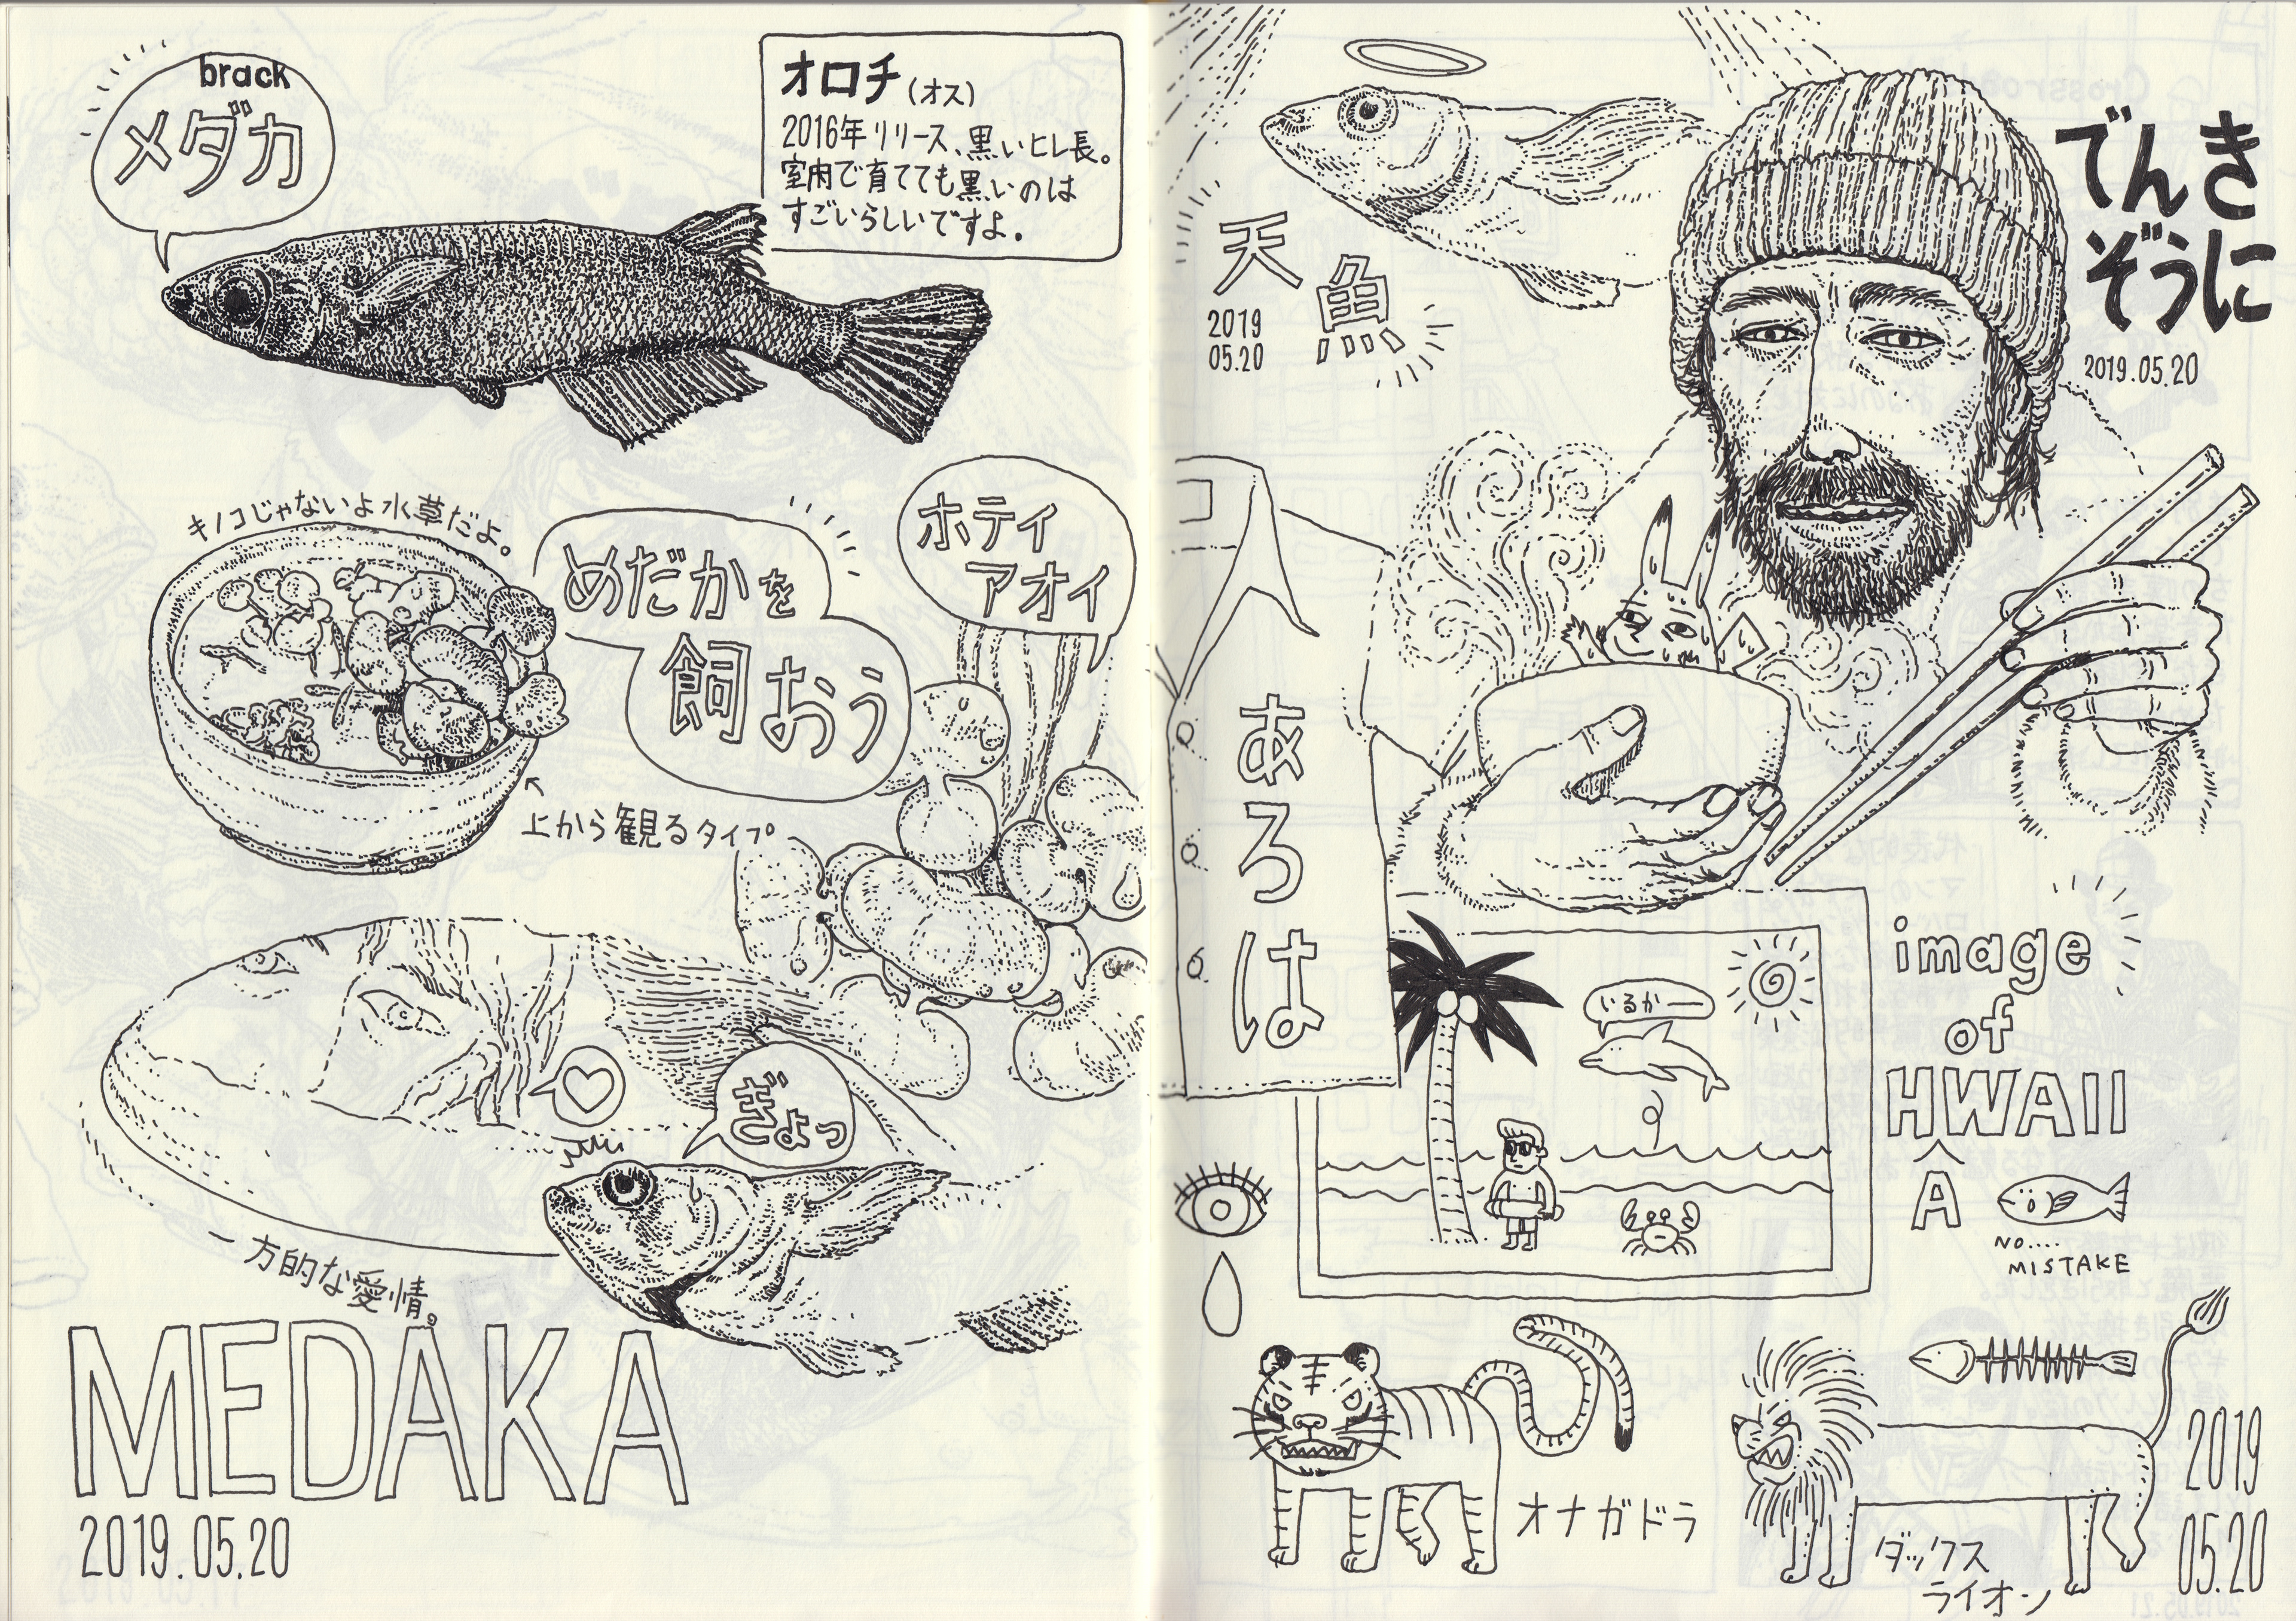 brack
メダカ
オロチ(オス)
2016年リリース、黒いヒレ長。
室内で育てても黒いのは
すごいらしいですよ。
キノコじゃないよ水草だよ。
めだかを
飼おう
ホテイ
アオイ
上から観るタイプ
ぎょっ
一方的な愛情。
MEDAKA
2019.05.20
天
魚
2019
05.20
でんき
ぞうに
2019.05.20
あろは
いるかー
image
of
HWAII
A
NO....
MISTAKE
オナガドラ
ダックス
ライオン
2019
05.20